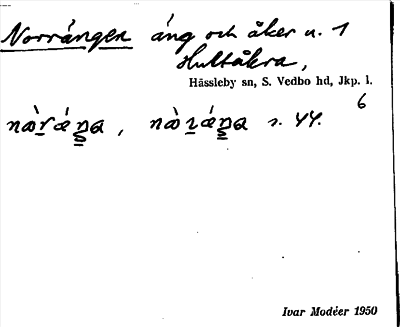 Norrängen äng och åker u. 1
Hultåkra,
Hässleby sn, S. Vedbo hd, Jkp. l.
6
s. 44.
Ivar Modéer 1950